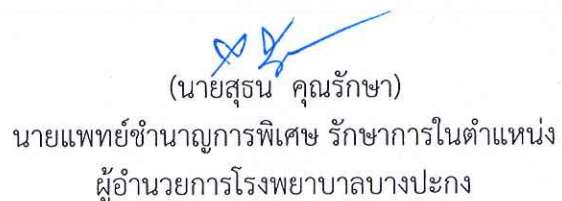 (นายสุธน คุณรักษา)
นายแพทย์ชำนาญการพิเศษ รักษาการในตำแหน่ง
ผู้อำนวยการโรงพยาบาลบางปะกง